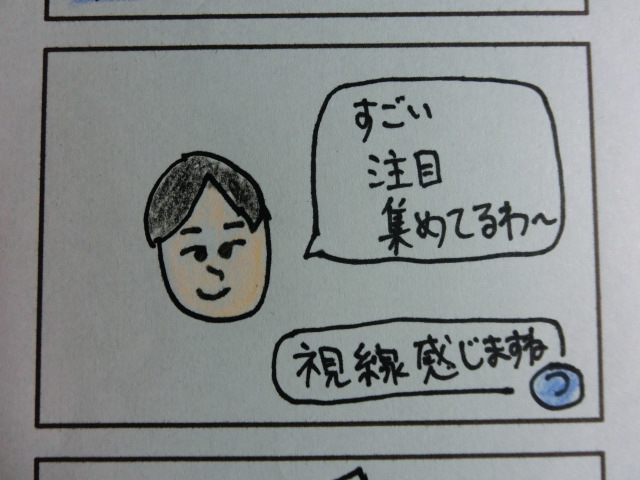 すごい
注目
集めてるわ～
視線感じますね
つ